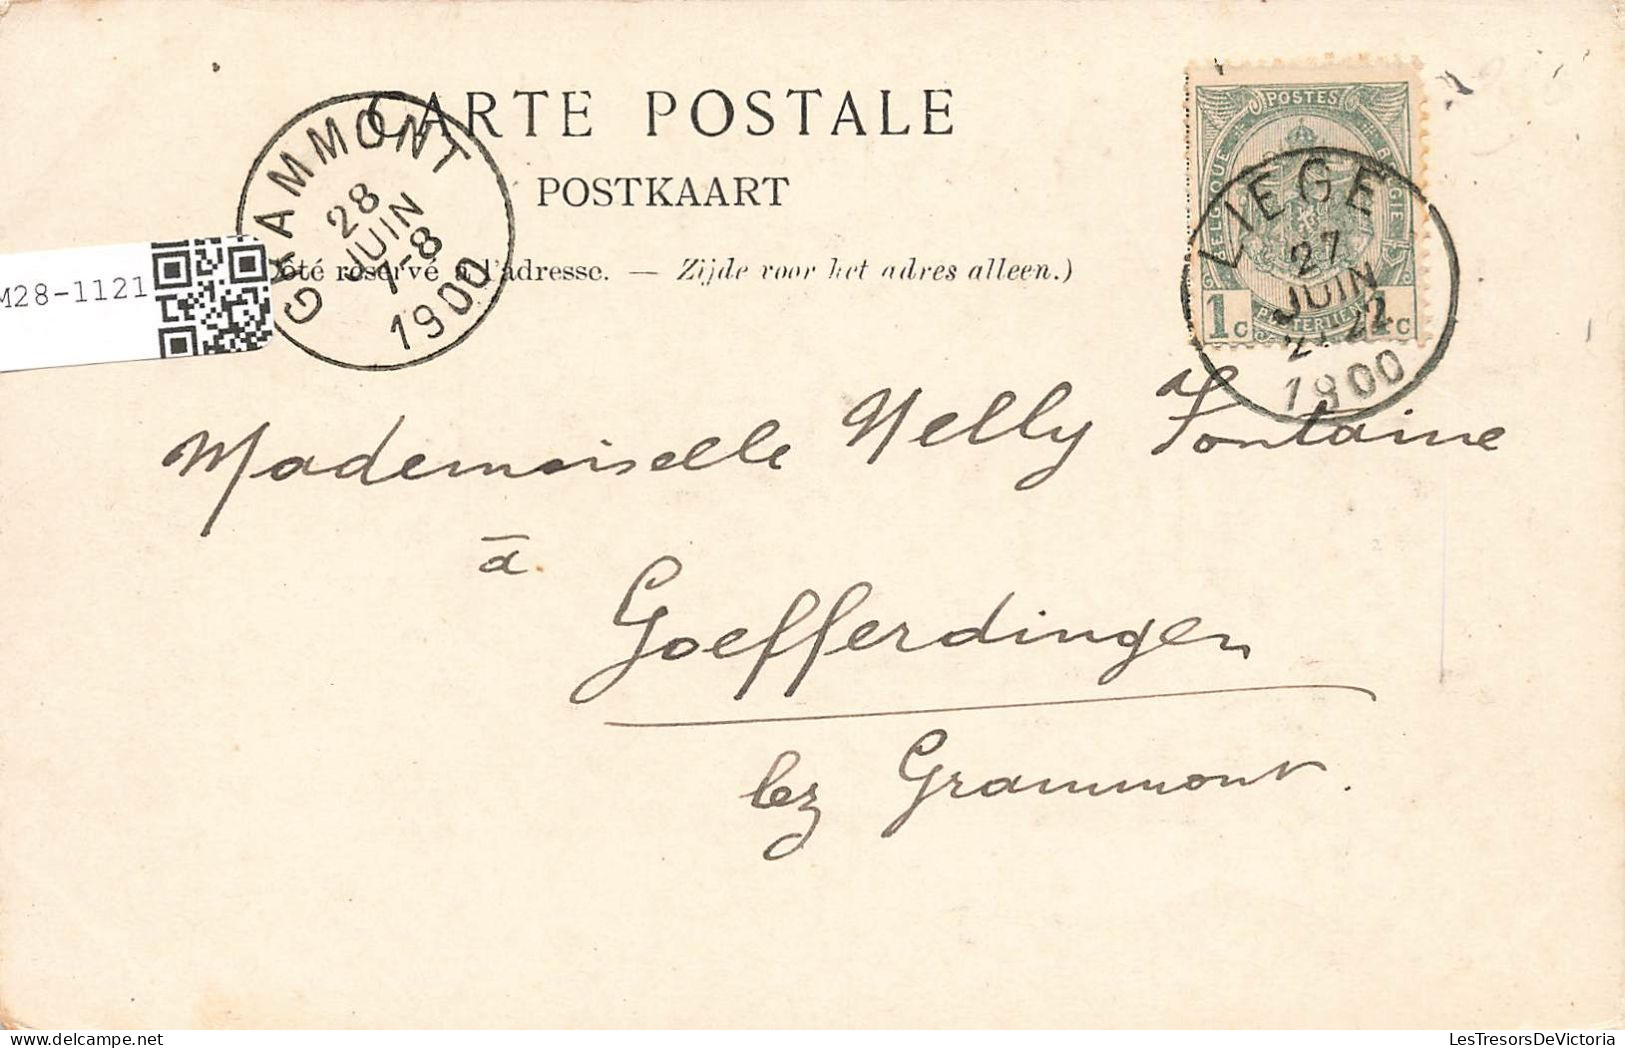 CARTE POSTALE
POSTKAART
Côté réservé à l'adresse. — Zijde voor het adres alleen.)
GRAMMONT
28
JUIN
7-8
1900
M28-1121
POSTES
BELGIQUE
BELGIE
1c
1c
LIEGE
27
JUIN
21-22
1900
Mademoiselle Nelly Fontaine
à
Goefferdingen
lez Grammont.
LesTresorsDeVictoria